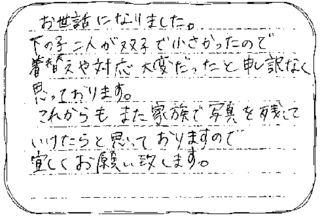 お世話になりました。
下の子二人が双子で小さかったので
着替えや対応大変だったと申し訳なく
思っております。
これからもまた家族で写真を残して
いけたらと思っておりますので
宜しくお願い致します。